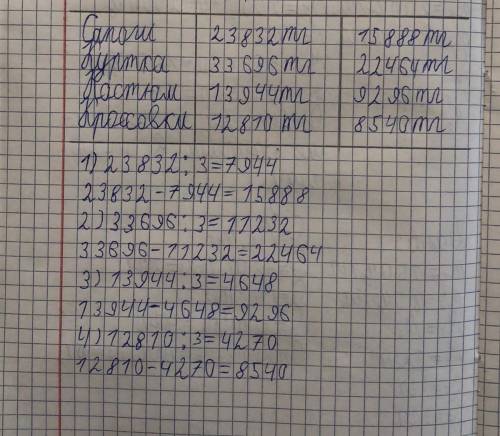 Сапоги 23832тг 15888тг
Куртка 33696тг 22464тг
Костюм 13944тг 9296тг
Кроссовки 12810тг 8540тг
1) 23832:3=7944
23832-7944=15888
2) 33696:3=11232
33696-11232=22464
3) 13944:3=4648
13944-4648=9296
4) 12810:3=4270
12810-4270=8540